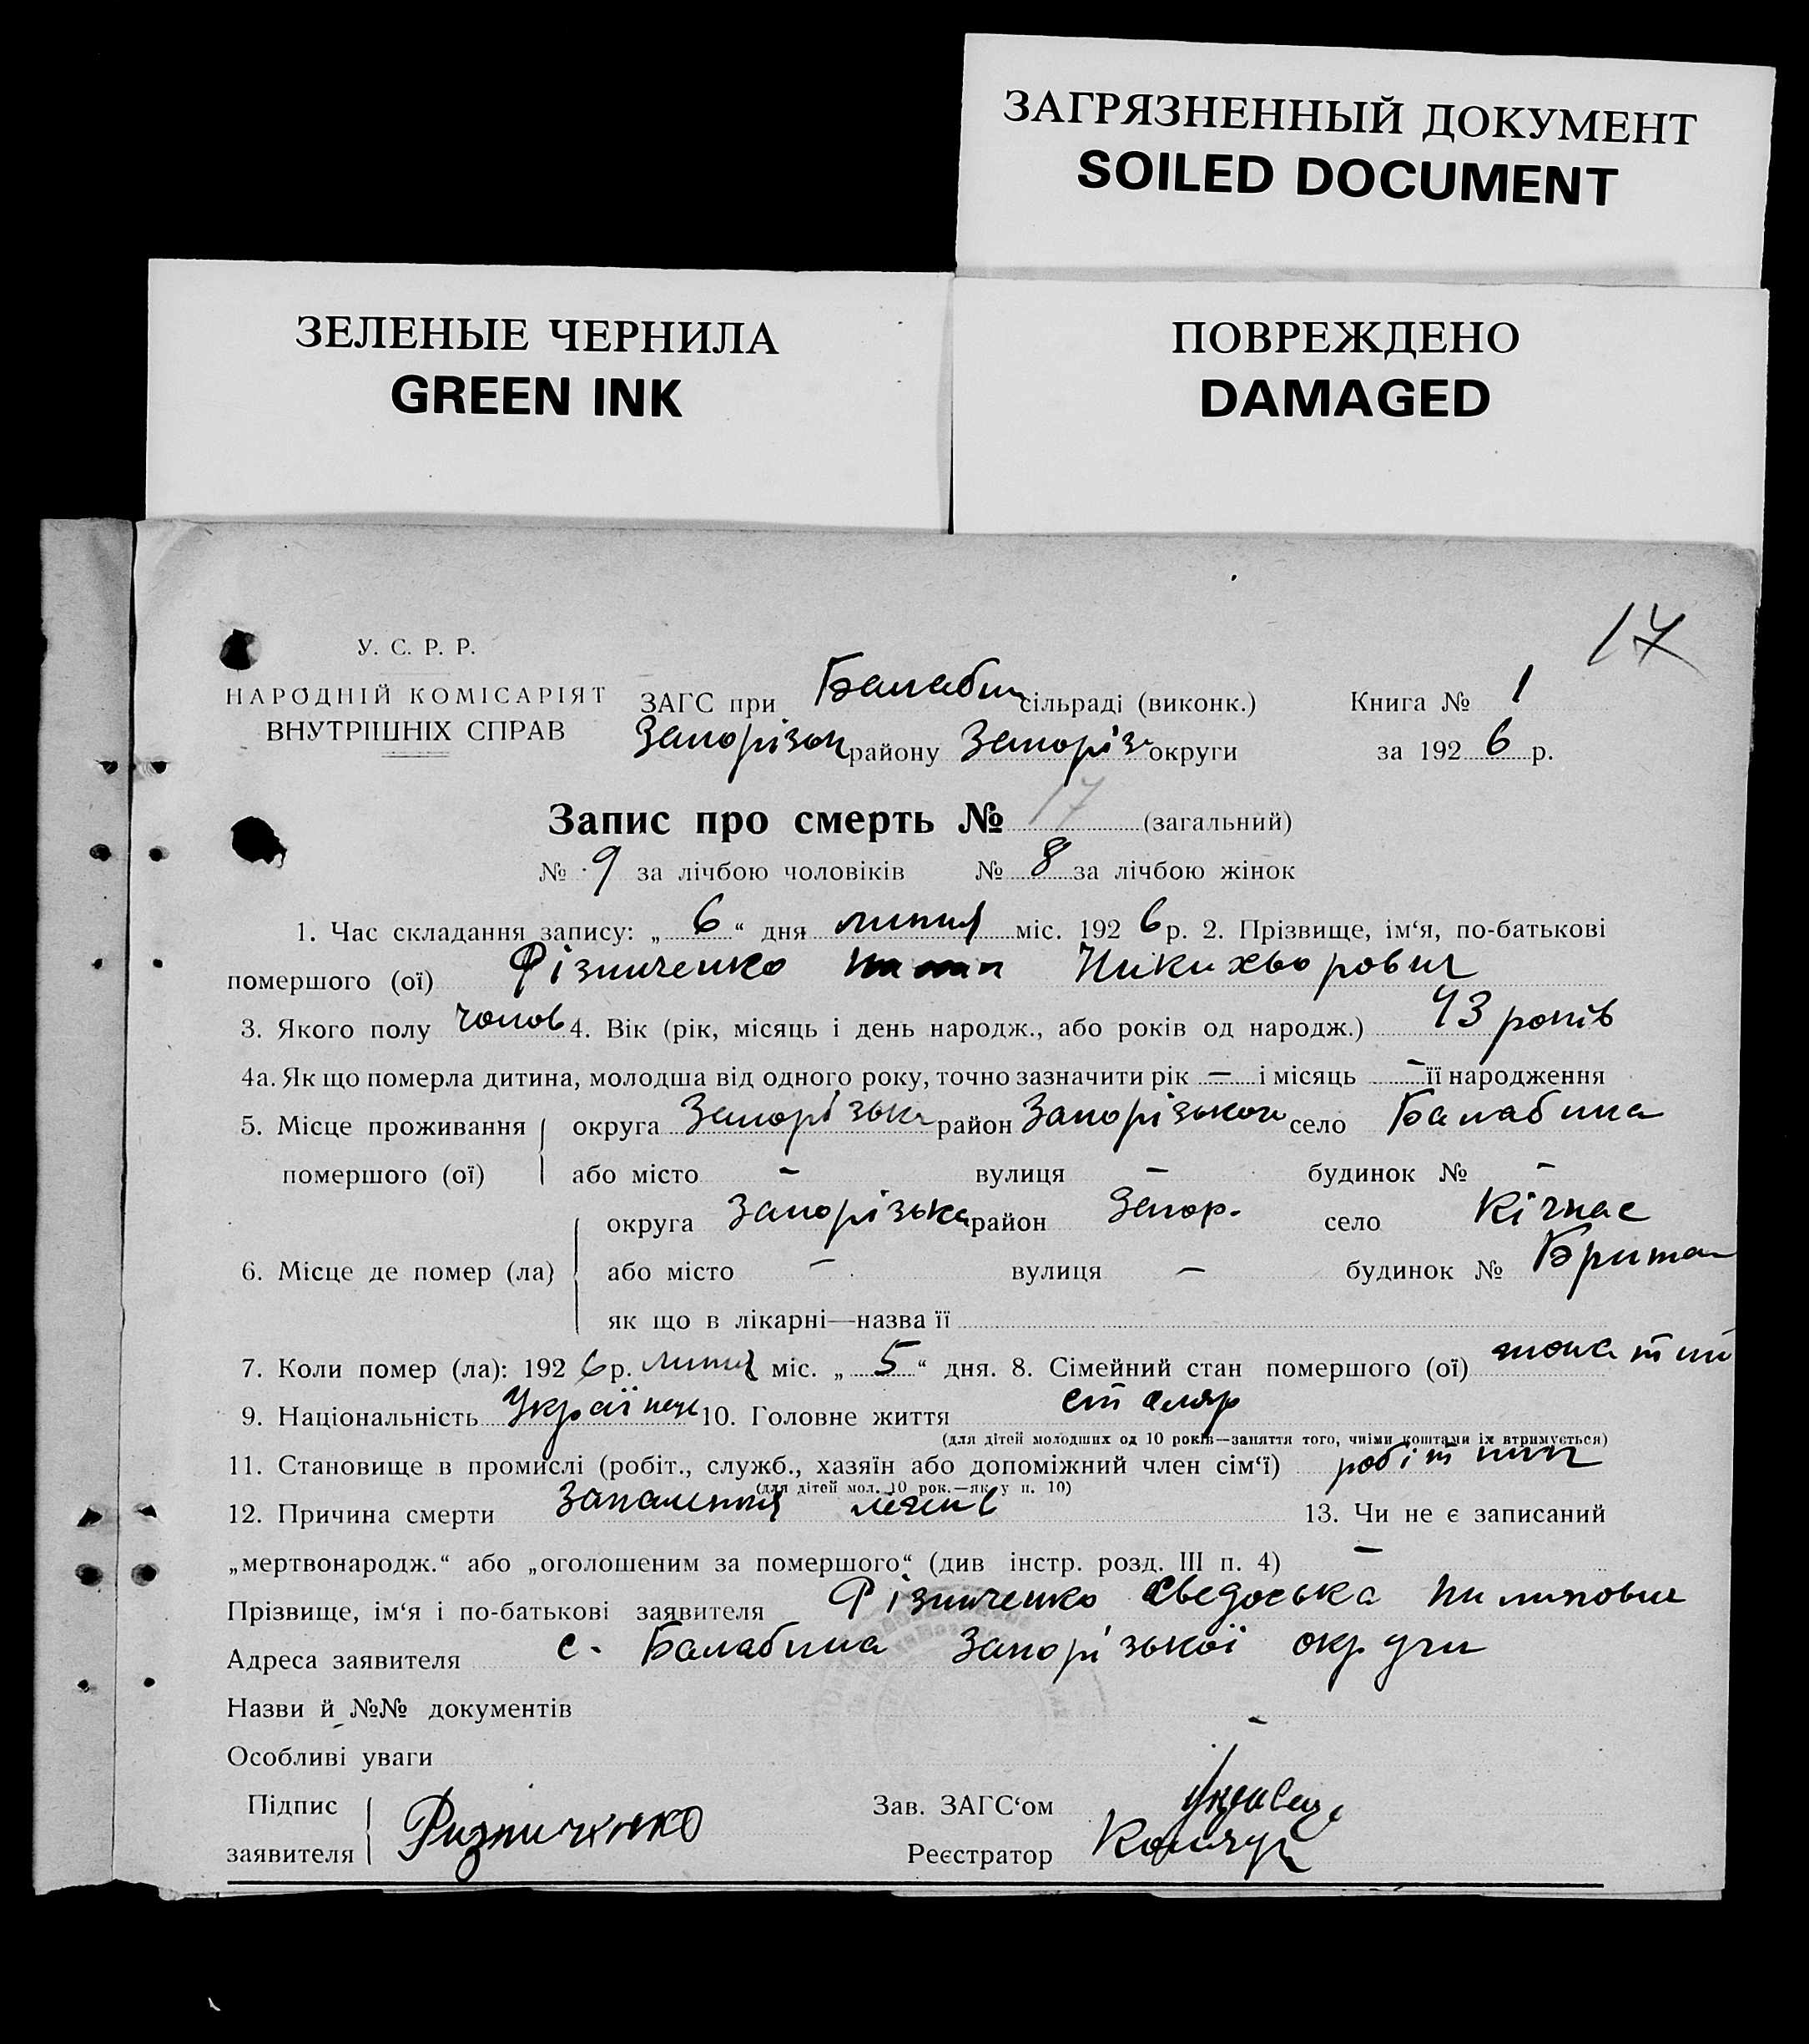 ЗАГРЯЗНЕННЫЙ ДОКУМЕНТ
SOILED DOCUMENT
ЗЕЛЕНЫЕ ЧЕРНИЛА
GREEN INK
ПОВРЕЖДЕНО
DAMAGED
17
У. С. Р. Р.
НАРОДНІЙ КОМІСАРІЯТ
ВНУТРІШНІХ СПРАВ
ЗАГС при Балабин сільраді (виконк.) Книга № 1
Запорізьк району Запоріз округи за 1926 р.
Запис про смерть № 17 (загальний)
№ 9 за лічбою чоловіків № 8 за лічбою жінок
1. Час складання запису: „ 6 “ дня липня міс. 1926 р. 2. Прізвище, ім‘я, по-батькові
помершого (ої) Різниченко Никихворович
3. Якого полу чолов 4. Вік (рік, місяць і день народж., або років од народж.) 43 років
4а. Як що померла дитина, молодша від одного року, точно зазначити рік — і місяць — її народження
5. Місце проживання округа Запорізька район Запорізького село Балабина
помершого (ої) або місто — вулиця — будинок № —
округа Запорізька район Запор. село Кічкас
6. Місце де помер (ла) або місто — вулиця — будинок №
як що в лікарні—назва її
7. Коли помер (ла): 1926 р. липня міс. „ 5 “ дня. 8. Сімейний стан помершого (ої) жонатий
9. Національність Українец 10. Головне життя столяр
(для дітей молодших од 10 років—заняття того, чиїми коштами їх втримується)
11. Становище в промислі (робіт., служб., хазяїн або допоміжний член сім‘ї) робітник
(для дітей мол. 10 рок.—як у п. 10)
12. Причина смерти Запалення легенів 13. Чи не є записаний
„мертвонародж.“ або „оголошеним за помершого“ (див інстр. розд. III п. 4) —
Прізвище, ім‘я і по-батькові заявителя Різниченко Хведоська Пилиповна
Адреса заявителя с. Балабина Запорізької округи
Назви й №№ документів
Особливі уваги
Підпис
заявителя Ризниченко
Зав. ЗАГС‘ом
Реєстратор